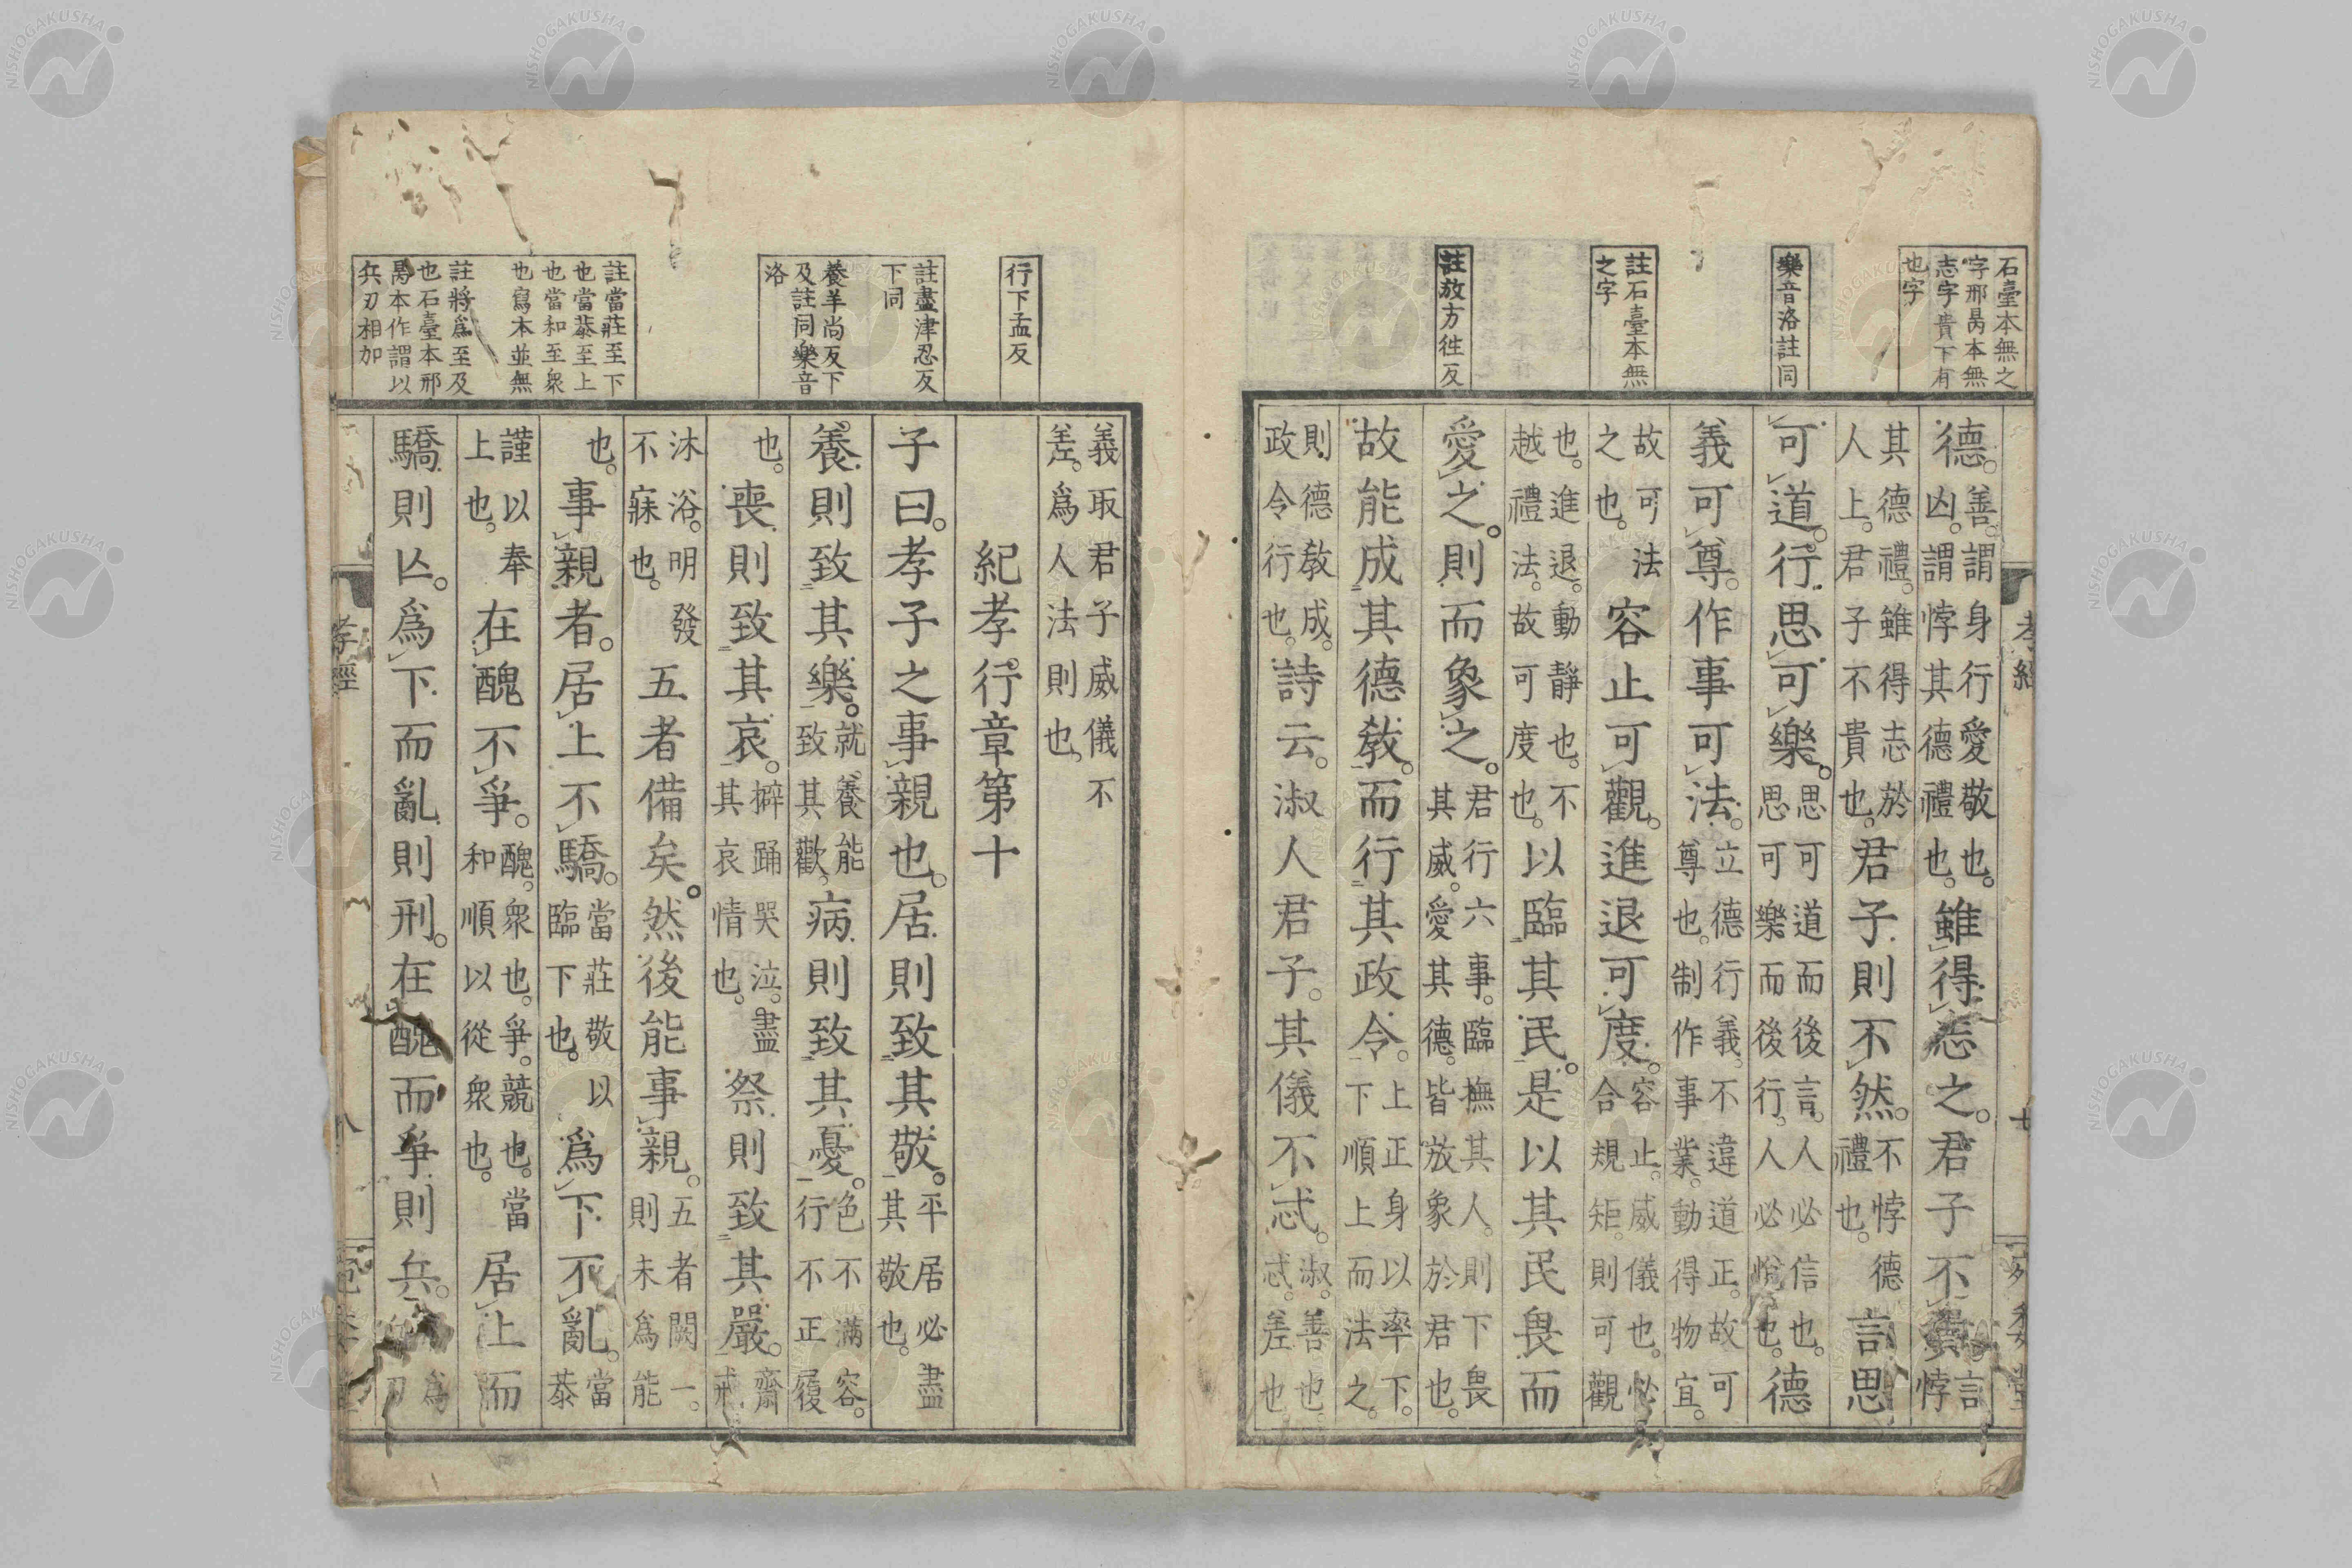 石臺本無之
字邢昺本無
志字貴下有
也字
樂音洛註同
註石臺本無
之字
註放方徃反
德善謂身行愛敬也
凶謂悖其德禮也雖得志之君子不貴言
悖
其德禮雖得志於
人上君子不貴也君子則不然不悖德
禮也言思
可道行思可樂思可道而後言人必信也
思可樂而後行人必悅也德
義可尊作事可法立德行義不違道正故可
尊也制作事業動得物宜
故可法
之也容止可觀進退可度容止威儀也必
合規矩則可觀
也進退動靜也不
越禮法故可度也以臨其民是以其民畏而
愛之則而象之君行六事臨撫其人則下畏
其威愛其德皆放象於君也
故能成其德敎而行其政令上正身以率下
下順上而法之
則德敎成
政令行也詩云淑人君子其儀不忒淑善也
忒差也
義取君子威儀不
差爲人法則也
行下孟反
註盡津忍反
下同
養羊尚反下
及註同樂音
洛
註當莊至下
也當恭至上
也當和至衆
也寫本並無
註將爲至及
也石臺本邢
昺本作謂以
兵刃相加
紀孝行章第十
子曰孝子之事親也居則致其敬平居必盡
其敬也
養則致其樂就養能
致其歡病則致其憂色不滿容
行不正履
也喪則致其哀擗踊哭泣盡
其哀情也祭則致其嚴齋
戒
沐浴明發
不寐也五者備矣然後能事親五者闕一
則未爲能
也事親者居上不驕當莊敬以
臨下也爲下不亂當
恭
謹以奉
上也在醜不爭醜衆也爭競也當
和順以從衆也居上而
驕則亾爲下而亂則刑在醜而爭則兵爲
刃
孝經